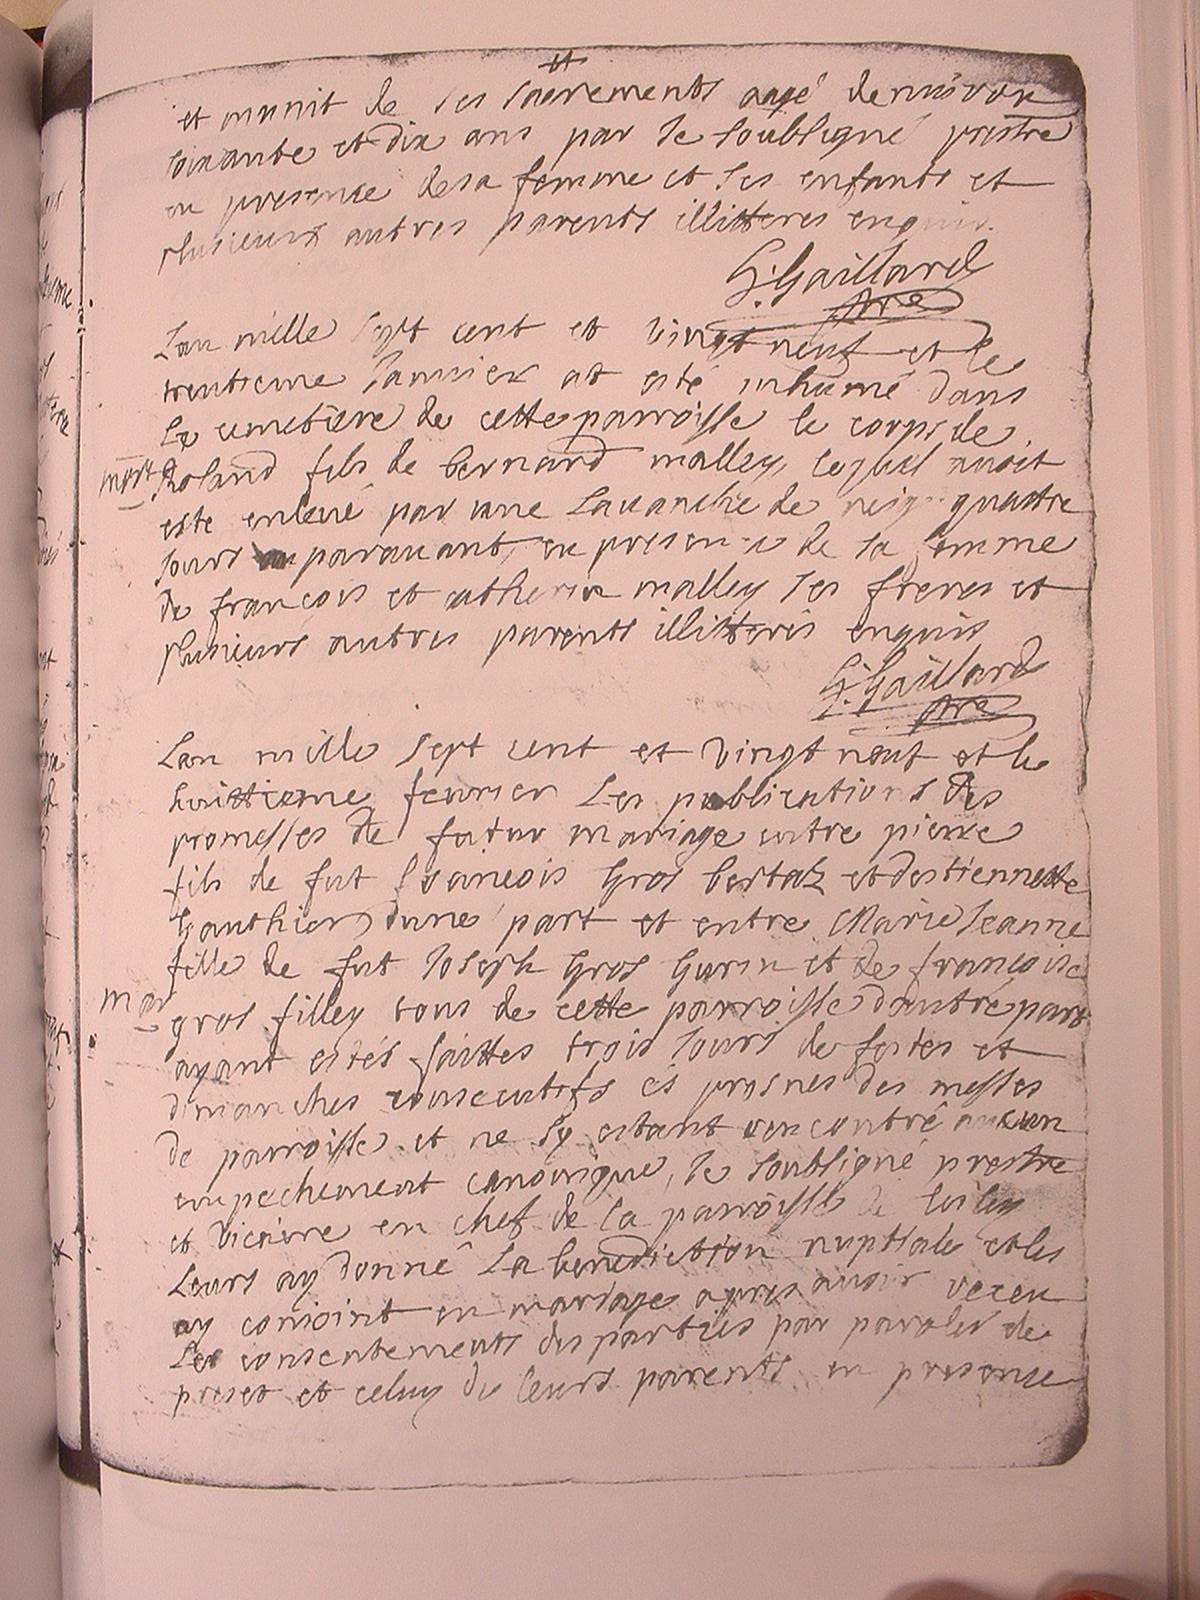 et munit de ses sacrements aagé denuiron
soixante et dix ans par le soubsigné prestre
en presence de sa femme et ses enfants et
plusieurs autres parents illitteres enquis.
G. Gaillard
pre
Lan mille sept cent et vingt neuf et le
trentieme Januier at esté inhumé dans
Le cemetiere de cette parroisse le corps de
mort Roland fils de bernard malley, lequel auoit
este enleué par une Lauanche de neig quattre
Jours auparauant, en presence de sa femme
de françois et catherin malley ses freres et
plusieurs autres parents illitteris enquis
G: Gaillard
pre
Lan mille sept cent et vingt neuf et le
huittieme feurier Les publications des
promesses de futur mariage entre pierre
fils de fut francois Gros bertaz et destiennette
Gauthier dune part et entre Marie Jeanne
fille de fut Joseph Gros Gurin et de françoise
mar gros filley tous de cette parroisse dautre part
ayant estés faittes trois Jours de festes et
dimanches consecutifs és prosnes des messes
de parroisse et ne sy estant rencontré aucun
empechement canonique, le soubsigné prestre
et vicaire en chef de la parroisse de
Leurs ay donné La benediction nuptiale et les
ay conioint en mariage apres auoir receu
Les consentements des parties par paroles de
preset et celuy de leurs parents en presence